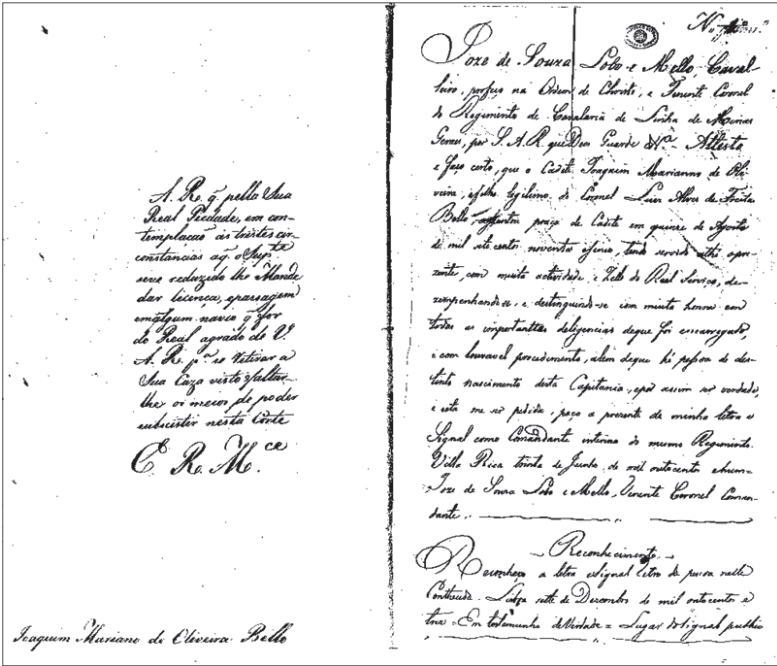 A. R. q. pella Sua
Real Piedade, em con-
templacaõ as tristes cir-
constancias aq. o Sup.te
seve reduzido lhe Mande
dar licença, epassagem
emalgum navio q. for
do Real agrado de V.
A. R. p.a se retirar a
Sua Caza visto faltar-
lhe os meios de poder
subcistir nesta Corte
E. R. M.ce
Joaquim Mariano de Oliveira Bello
Joze de Souza Lobo e Mello, Caval-
leiro, professo na Ordem de Christo, e Tenente Coronel
do Regimento de Cavalaria de Linha de Minas
Geraes, por S. A. R. que Deos Guarde N.a Attesta
e faço certo, que o Cadete Joaquim Marianno de Oli-
veira, efilho legitimo do Coronel Luis Alves de Freitas
Bello, praça de Cadete em quinze de Agosto
de mil sete centos noventa, tendo servido athé opre-
zente, com muita actividade, e Zello do Real Serviço, de-
zempenhandose, e destinguindo-se com muita honra em
todas as importanttes deligencias deque foi encarregado,
e com louvavel procedimento, alem deque hé pessoa de des-
tinto nascimento desta Capitania, epor assim ser verdade,
e esta me ser pedida, paço a prezente de minha letra e
Signal como Comandante interino do mesmo Regimento.
Villa Rica trinta de Junho de mil outocentos ehum =
Joze de Souza Lobo e Mello, Tenente Coronel Coman-
dante.
Reconhecimento
Reconheço a letra eSignal
Lisboa sette de Dezembro de mil outocentos e
tres = Em testemunho deVerdade = Lugar doSignal publico